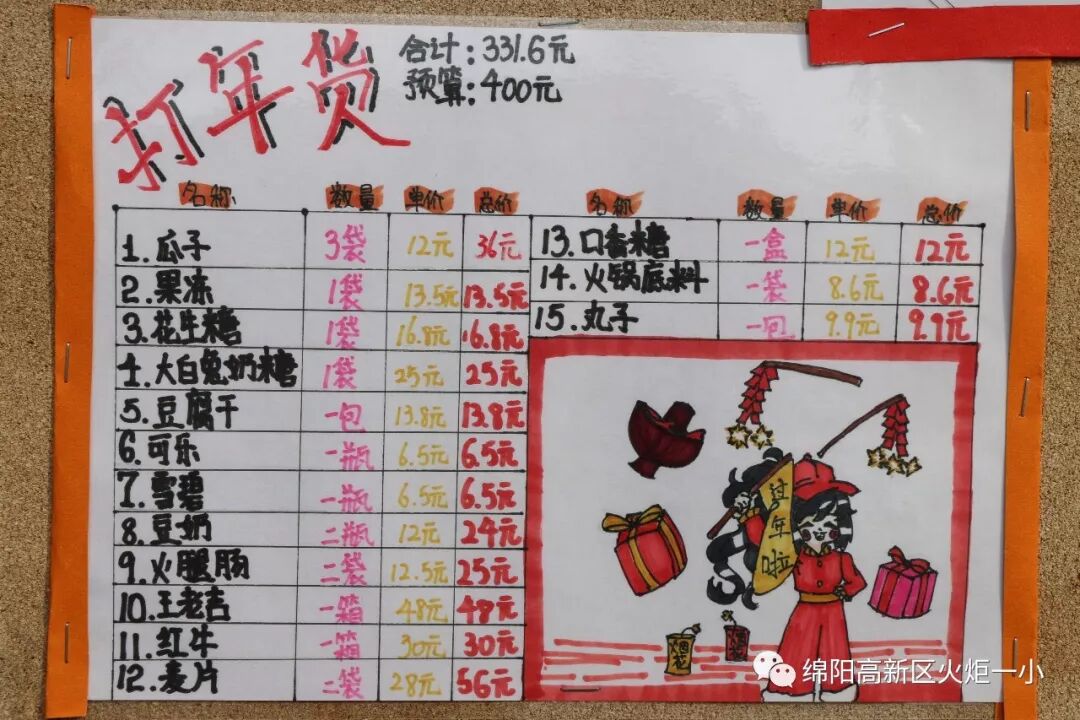 打年货
合计:331.6元
预算:400元
名称 数量 单价 总价
1.瓜子 3袋 12元 36元
2.果冻 1袋 13.5元 13.5元
3.花生糖 1袋 16.8元 16.8元
4.大白兔奶糖 1袋 25元 25元
5.豆腐干 一包 13.8元 13.8元
6.可乐 一瓶 6.5元 6.5元
7.雪碧 一瓶 6.5元 6.5元
8.豆奶 二瓶 12元 24元
9.火腿肠 二袋 12.5元 25元
10.王老吉 一箱 48元 48元
11.红牛 一箱 30元 30元
12.麦片 二袋 28元 56元
名称 数量 单价 总价
13.口香糖 一盒 12元 12元
14.火锅底料 一袋 8.6元 8.6元
15.丸子 一包 9.9元 9.9元
过年啦
烟花
绵阳高新区火炬一小